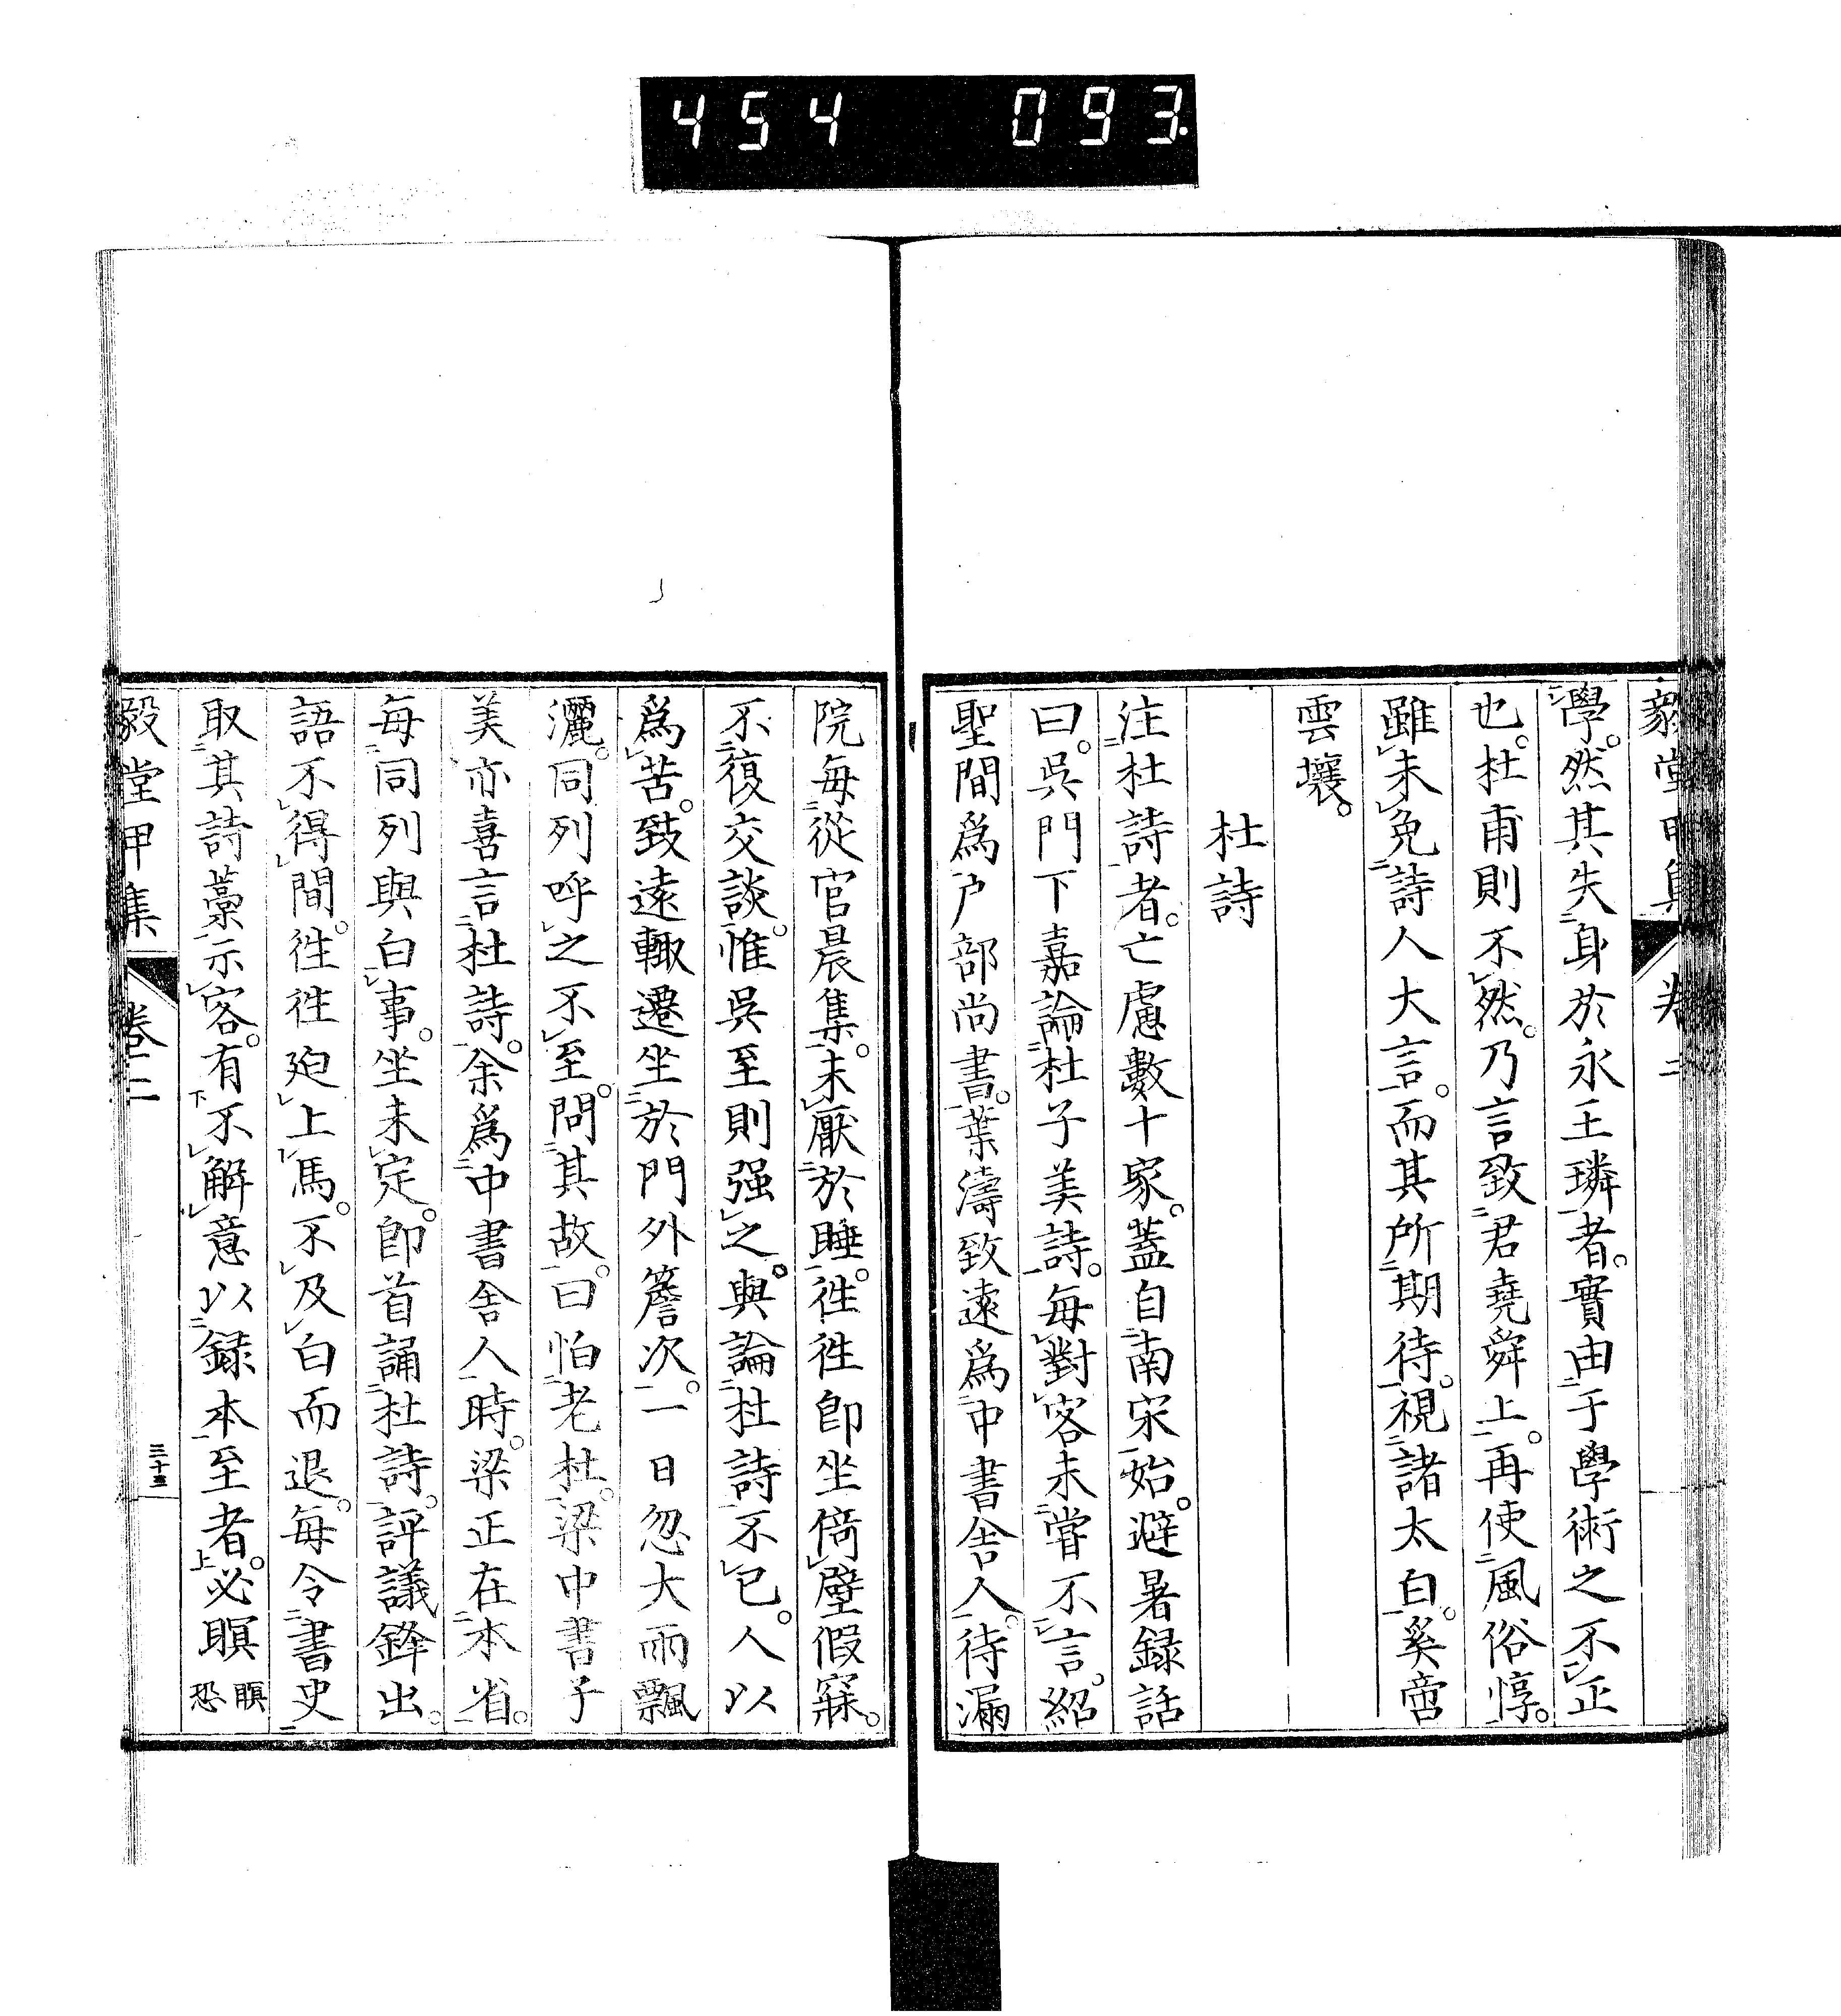 454 093
毅堂甲集 卷二
學。然其失身於永王璘者。實由于學術之不正
也。杜甫則不然。乃言致君堯舜上。再使風俗惇。
雖未免詩人大言。而其所期待。視諸太白。奚啻
雲壤。
杜詩
注杜詩者。亡慮數十家。蓋自南宋始。避暑録話
曰。吳門下嘉論杜子美詩。每對客未嘗不言。紹
聖間爲户部尚書。葉濤致遠爲中書舍人。待漏
院每從官晨集。未厭於睡。徃徃卽坐倚壁假寐。
不復交談。惟吳至則强之。與論杜詩不已。人以
爲苦。致遠輙遷坐於門外簷次。一日忽大雨飄
灑。同列呼之不至。問其故。曰怕老杜。梁中書子
美亦喜言杜詩。余爲中書舍人時。梁正在本省。
每同列與白事。坐未定。卽首誦杜詩。評議鋒出。
語不得間。徃徃廹上馬。不及白而退。每令書史
取其詩藁示客。有不解意以録本至者。必瞑 瞋恐
毅堂甲集 卷二 三十三